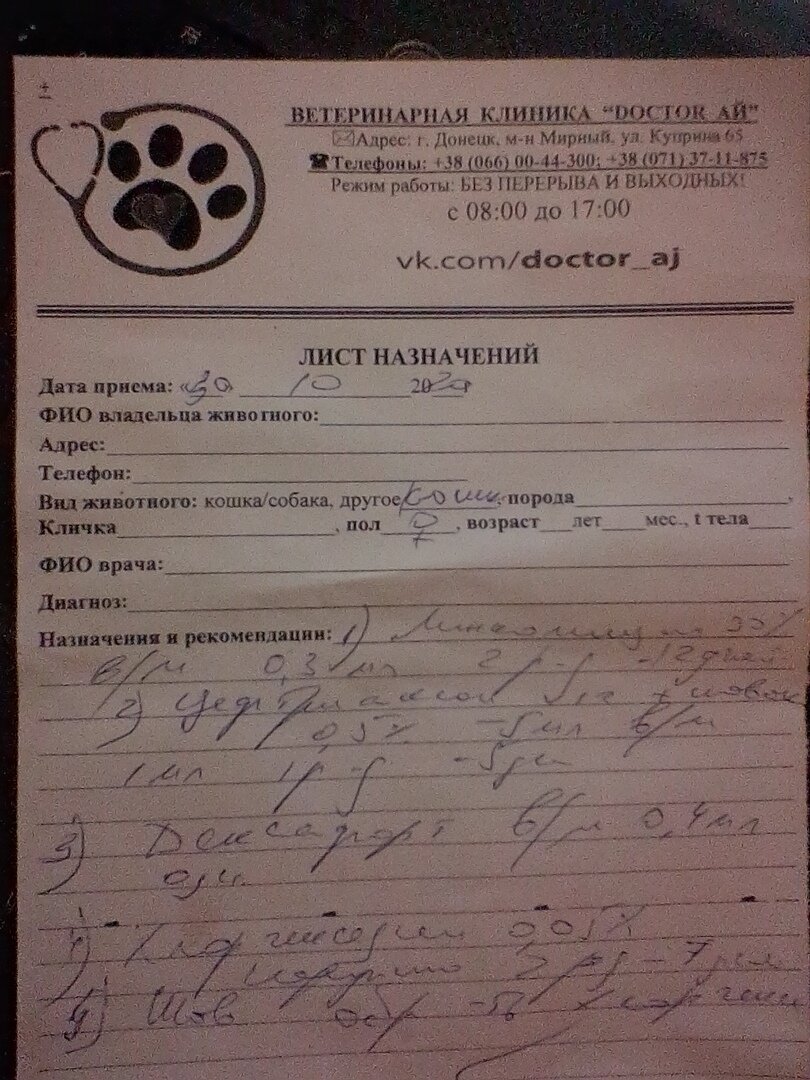 ВЕТЕРИНАРНАЯ КЛИНИКА "DOCTOR АЙ"
Адрес: г. Донецк, м-н Мирный, ул. Куприна 65
Телефоны: +38 (066) 00-44-300; +38 (071) 37-11-875
Режим работы: БЕЗ ПЕРЕРЫВА И ВЫХОДНЫХ!
с 08:00 до 17:00
vk.com/doctor_aj
ЛИСТ НАЗНАЧЕНИЙ
Дата приема: «30» 10 20
ФИО владельца животного:
Адрес:
Телефон:
Вид животного: кошка/собака, другое кошк, порода ,
Кличка , пол ♀, возраст лет мес., t тела
ФИО врача:
Диагноз:
Назначения и рекомендации: 1) 30%
в/м 0,3 мл 2 р-д дней
2) Цефтриаксон 1г +
0,5% -5мл в/м
1 мл 1р-д -5дн
3) Дексафорт в/м 0,4мл
4) Хлоргексидин 0,05%